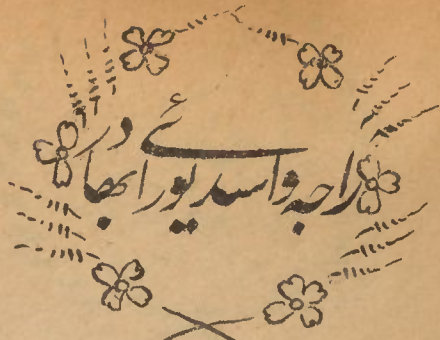 راجہ واسدیو رائے بھادر